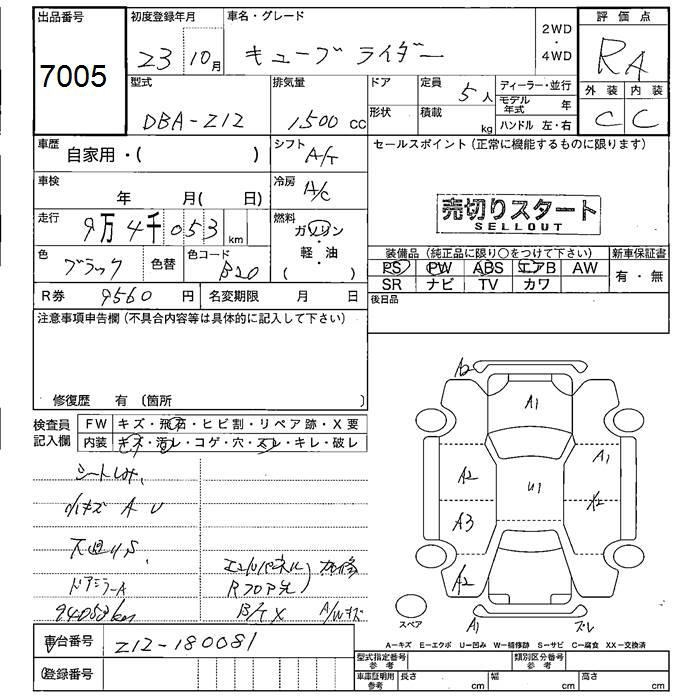 出品番号 初度登録年月 車名・グレード 2WD・4WD 評価点
7005 23 10月 キューブ ライダー RA
型式 排気量 ドア 定員 5人 ディーラー・並行 外装 内装
DBA-Z12 1,500 cc 形状 積載 kg モデル年式 年 C C
ハンドル 左・右
車歴 自家用・( ) シフト A/T セールスポイント(正常に機能するものに限ります)
車検 年 月( 日) 冷房 A/C
走行 9万4千053 km 燃料 ガソリン・軽・油 ( )
売切りスタート
SELLOUT
色 ブラック 色替 色コード B20
装備品(純正品に限り○をつけて下さい) 新車保証書
PS PW ABS エアB AW 有・無
SR ナビ TV カワ
R券 9560 円 名変期限 月 日 後日品
注意事項申告欄(不具合内容等は具体的に記入して下さい)
修復歴 有 (箇所 )
検査員記入欄 FW キズ・飛石・ヒビ割・リペア跡・X要
内装 キズ・汚レ・コゲ・穴・スレ・キレ・破レ
シートしみ,
小キズ A U
下廻りS
ドアミラーA
94053km
エンドパネル)
Rフロア先)
B/T X A/Wキズ
A2
A1
A2 U1 A1
A3 X2
A2
A1 ズレ
スペア
A-キズ E-エクボ U-凹み W-補修跡 S-サビ C-腐食 XX-交換済
車台番号 Z12-180081
登録番号
型式指定番号 参考 類別区分番号 参考
車庫証明用 参考 長さ cm 幅 cm 高さ cm